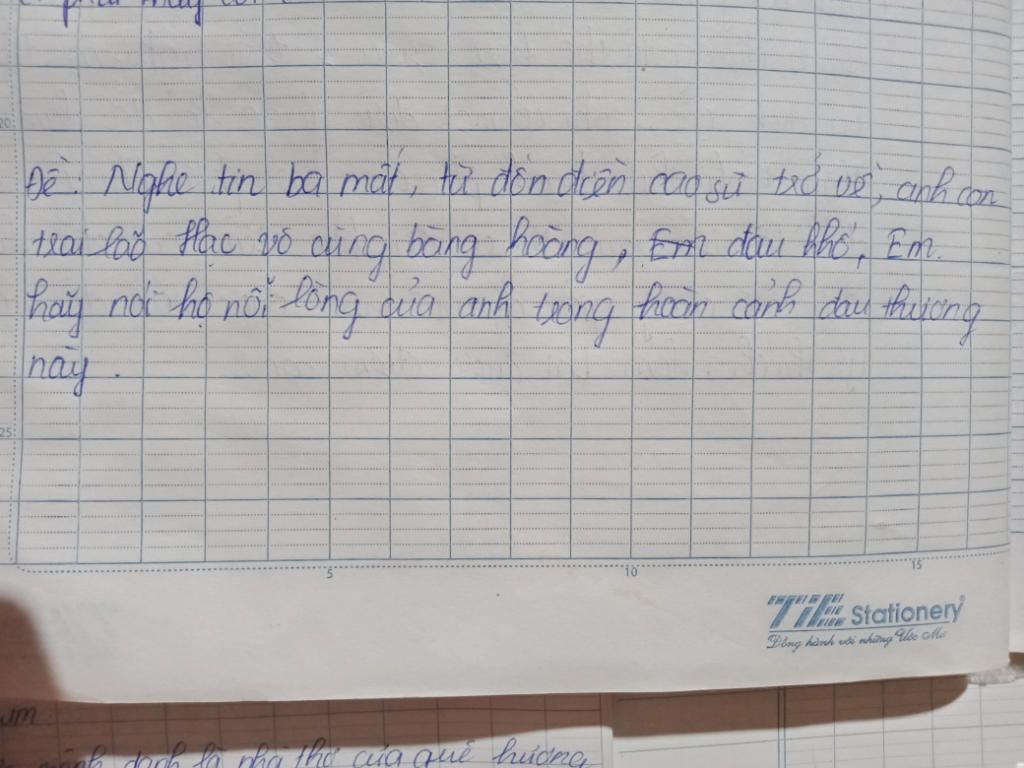 20
Đề: Nghe tin ba mất, từ đồn điền cao sư trở về, anh con
trai lão Hạc vô cùng bàng hoàng, Em đau khổ, Em.
hãy nói hộ nỗi lòng của anh trong hoàn cảnh đau thương
này.
25
5 10 15
TIE Stationery
Đồng hành với những Ước Mơ
danh là nhà thơ của quê hương